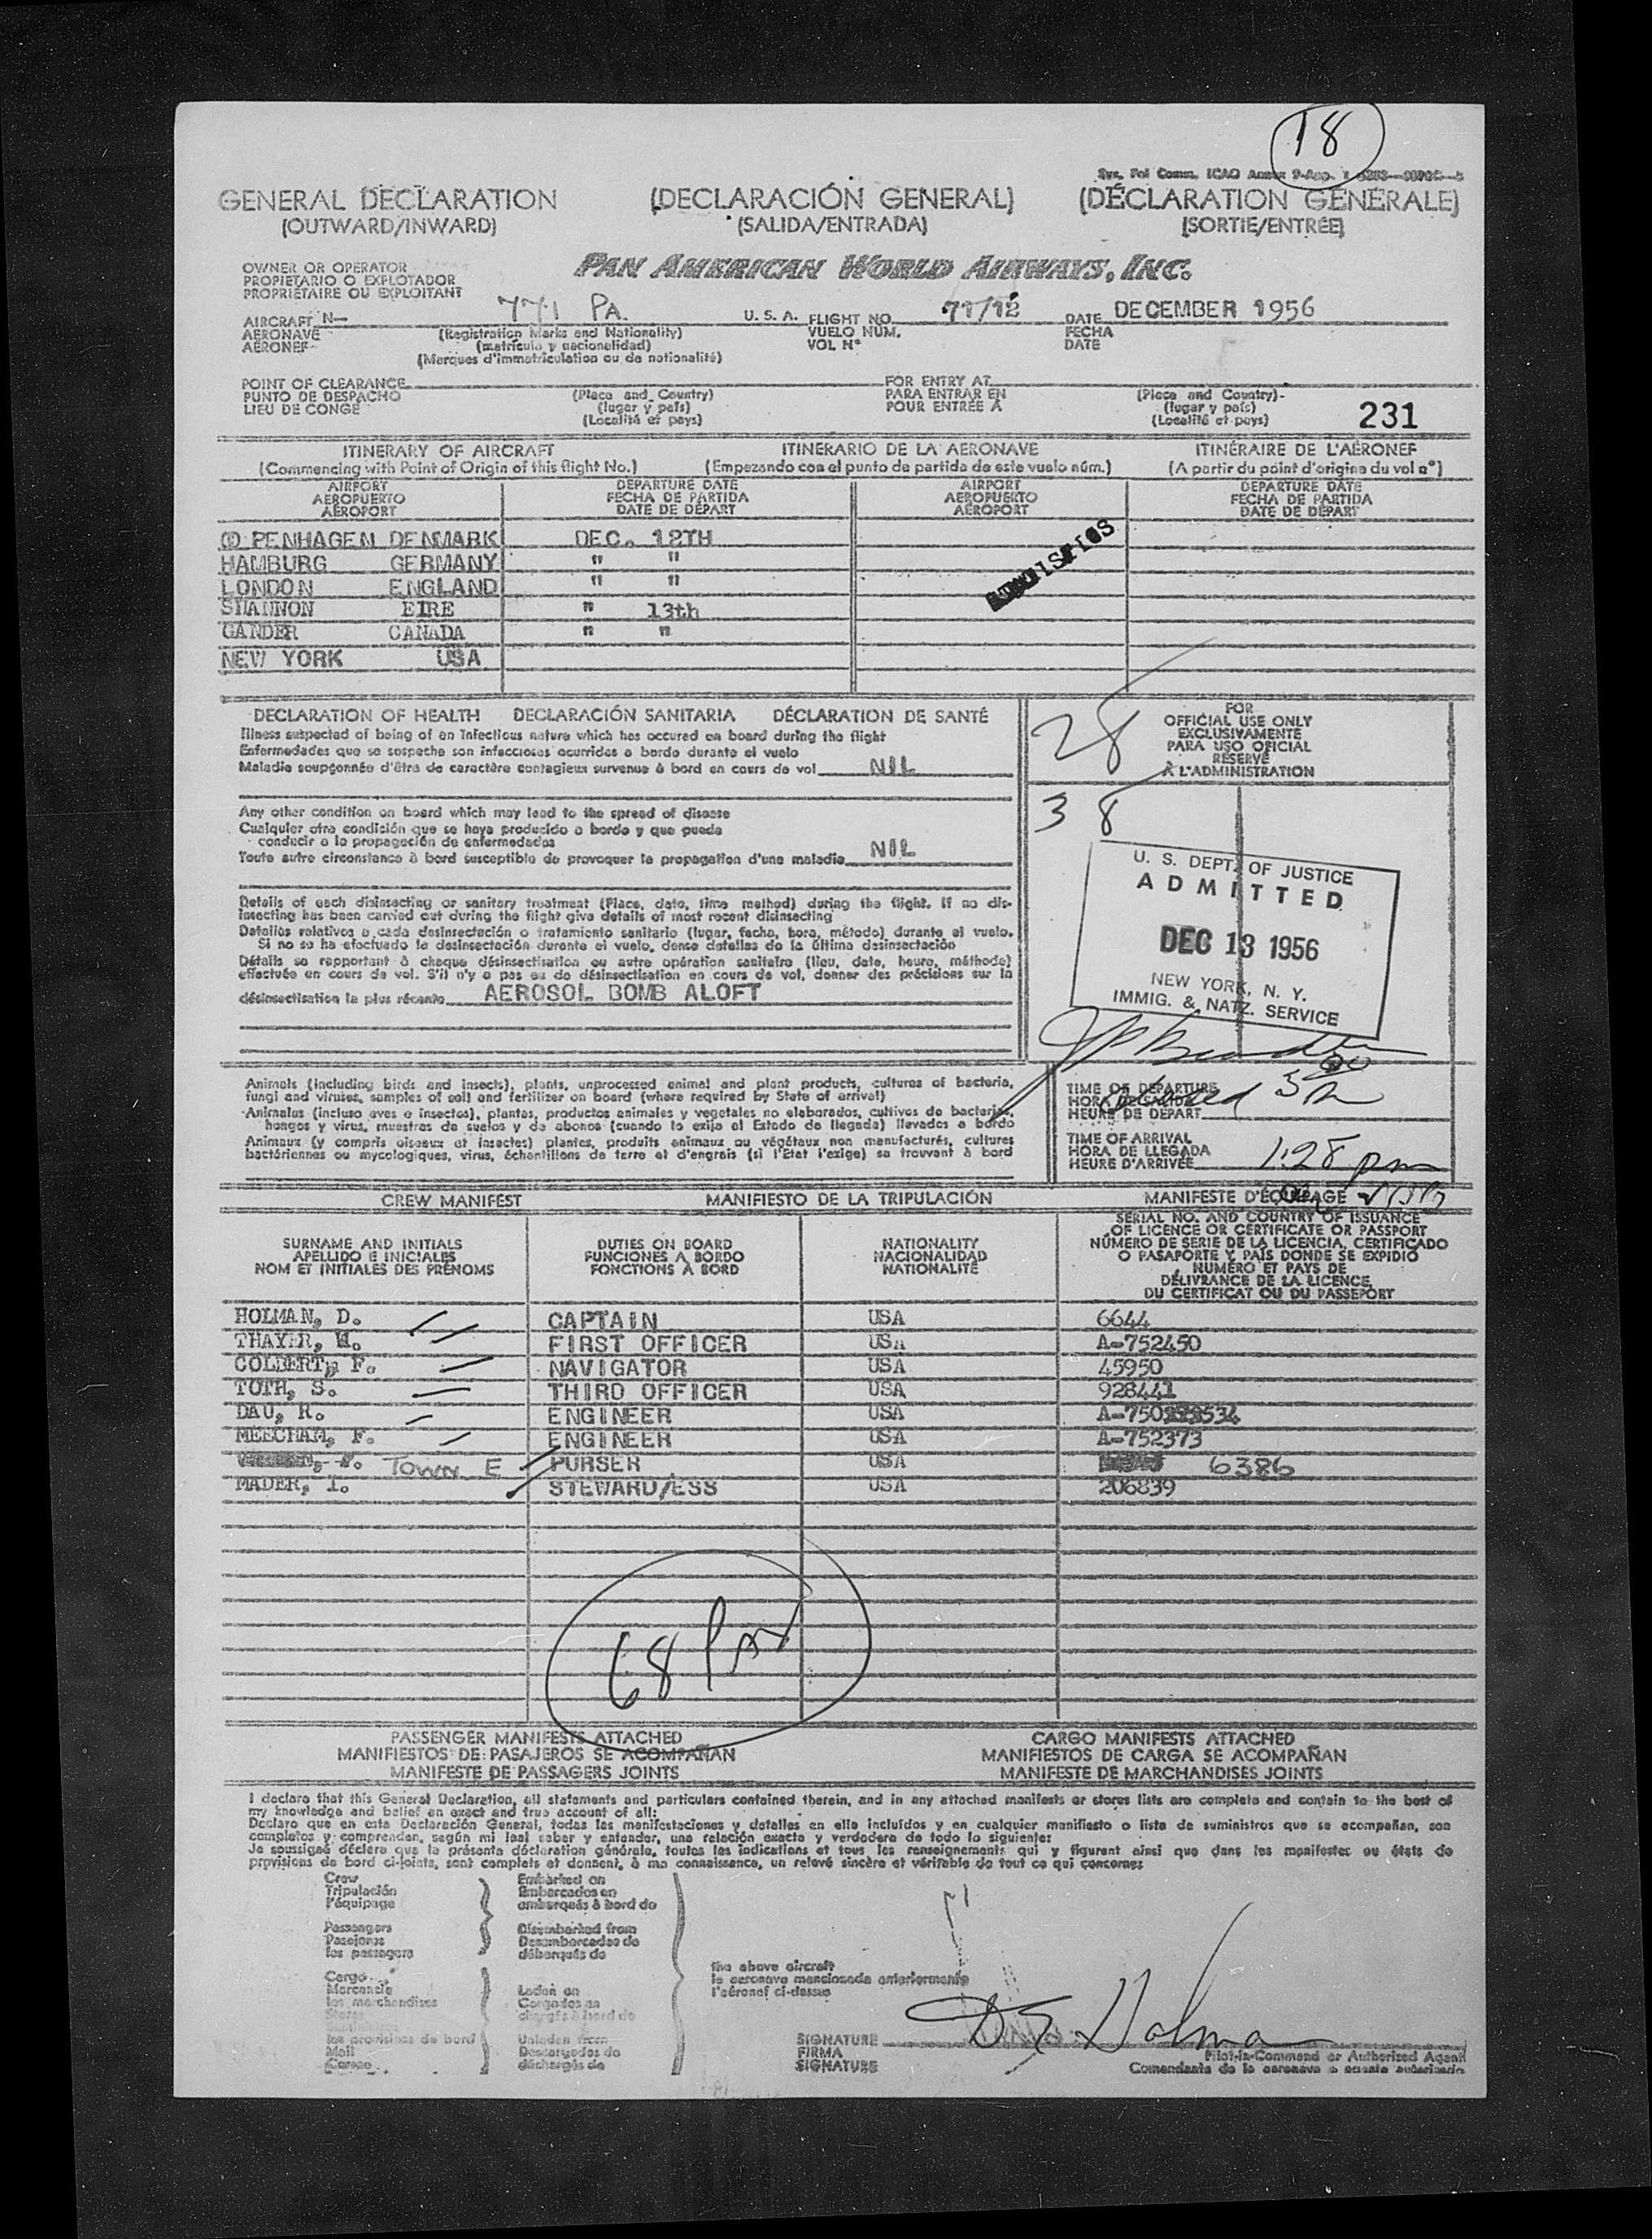 18
GENERAL DECLARATION (DECLARACIÓN GENERAL) (DÉCLARATION GÉNÉRALE)
(OUTWARD/INWARD) (SALIDA/ENTRADA) (SORTIE/ENTRÉE)
OWNER OR OPERATOR
PROPIETARIO O EXPLOTADOR
PROPRIÉTAIRE OU EXPLOITANT
PAN AMERICAN WORLD AIRWAYS, INC.
AIRCRAFT N— 771 PA. U. S. A. FLIGHT NO. 71/12 DATE DECEMBER 1956
AERONAVE (Registration Marks and Nationality) VUELO NÚM. FECHA
AÉRONEF (matrícula y nacionalidad) VOL Nº DATE
(Marques d'immatriculation ou de nationalité)
POINT OF CLEARANCE FOR ENTRY AT
PUNTO DE DESPACHO (Place and Country) PARA ENTRAR EN (Place and Country)
LIEU DE CONGÉ (lugar y país) POUR ENTRÉE À (lugar y país)
(Localité et pays) (Localité et pays)
231
ITINERARY OF AIRCRAFT ITINERARIO DE LA AERONAVE ITINÉRAIRE DE L'AÉRONEF
(Commencing with Point of Origin of this flight No.) (Empezando con el punto de partida de este vuelo núm.) (A partir du point d'origine du vol nº)
AIRPORT DEPARTURE DATE AIRPORT DEPARTURE DATE
AEROPUERTO FECHA DE PARTIDA AEROPUERTO FECHA DE PARTIDA
AÉROPORT DATE DE DÉPART AÉROPORT DATE DE DÉPART
COPENHAGEN DENMARK DEC. 12TH
HAMBURG GERMANY " "
LONDON ENGLAND " "
SHANNON EIRE " 13th
GANDER CANADA " "
NEW YORK USA
DECLARATION OF HEALTH DECLARACIÓN SANITARIA DÉCLARATION DE SANTÉ
Illness suspected of being of an infectious nature which has occured on board during the flight
Enfermedades que se sospeche son infecciosas ocurridas a bordo durante el vuelo
Maladie soupçonnée d'être de caractère contagieux survenue à bord en cours de vol NIL
Any other condition on board which may lead to the spread of disease
Cualquier otra condición que se haya producido a bordo y que pueda
conducir a la propagación de enfermedades
Toute autre circonstance à bord susceptible de provoquer la propagation d'une maladie NIL
Details of each disinsecting or sanitary treatment (Place, date, time method) during the flight. If no dis-
insecting has been carried out during the flight give details of most recent disinsecting
Detalles relativos a cada desinsectación o tratamiento sanitario (lugar, fecha, hora, método) durante el vuelo.
Si no se ha efectuado la desinsectación durante el vuelo, dense detalles de la última desinsectación
Détails se rapportant à chaque désinsectisation ou autre opération sanitaire (lieu, date, heure, méthode)
effectuée en cours de vol. S'il n'y a pas eu de désinsectisation en cours de vol, donner des précisions sur la
désinsectisation la plus récente AEROSOL BOMB ALOFT
28
FOR
OFFICIAL USE ONLY
EXCLUSIVAMENTE
PARA USO OFICIAL
RÉSERVÉ
À L'ADMINISTRATION
3 8
U. S. DEPT. OF JUSTICE
ADMITTED
DEC 13 1956
NEW YORK, N. Y.
IMMIG. & NATZ. SERVICE
Animals (including birds and insects), plants, unprocessed animal and plant products, cultures of bacteria,
fungi and viruses, samples of soil and fertilizer on board (where required by State of arrival)
Animales (incluso aves e insectos), plantas, productos animales y vegetales no elaborados, cultivos de bacterias,
hongos y virus, muestras de suelos y de abonos (cuando lo exija el Estado de llegada) llevados a bordo
Animaux (y compris oiseaux et insectes) plantes, produits animaux ou végétaux non manufacturés, cultures
bactériennes ou mycologiques, virus, échantillons de terre et d'engrais (si l'État l'exige) se trouvant à bord
TIME OF DEPARTURE
HORA DE SALIDA
HEURE DE DÉPART
TIME OF ARRIVAL
HORA DE LLEGADA
HEURE D'ARRIVÉE 1:28 pm
CREW MANIFEST MANIFIESTO DE LA TRIPULACIÓN MANIFESTE D'ÉQUIPAGE
SURNAME AND INITIALS
APELLIDO E INICIALES
NOM ET INITIALES DES PRÉNOMS
DUTIES ON BOARD
FUNCIONES A BORDO
FONCTIONS À BORD
NATIONALITY
NACIONALIDAD
NATIONALITÉ
SERIAL NO. AND COUNTRY OF ISSUANCE
OF LICENCE OR CERTIFICATE OR PASSPORT
NÚMERO DE SERIE DE LA LICENCIA, CERTIFICADO
O PASAPORTE Y PAÍS DONDE SE EXPIDIÓ
NUMÉRO ET PAYS DE
DÉLIVRANCE DE LA LICENCE,
DU CERTIFICAT OU DU PASSEPORT
HOLMAN, D. CAPTAIN USA 6644
THAYER, W. FIRST OFFICER USA A-752450
COLBERT, F. NAVIGATOR USA 45950
TOTH, S. THIRD OFFICER USA 928441
DAU, R. ENGINEER USA
MEECHAM, F. ENGINEER USA A-752373
TOWN E PURSER USA 6386
MADER, I. STEWARD/ESS USA 206839
68
PASSENGER MANIFESTS ATTACHED CARGO MANIFESTS ATTACHED
MANIFIESTOS DE PASAJEROS SE ACOMPAÑAN MANIFIESTOS DE CARGA SE ACOMPAÑAN
MANIFESTE DE PASSAGERS JOINTS MANIFESTE DE MARCHANDISES JOINTS
I declare that this General Declaration, all statements and particulars contained therein, and in any attached manifests or stores lists are complete and contain to the best of
my knowledge and belief an exact and true account of all:
Declaro que en esta Declaración General, todas las manifestaciones y detalles en ella incluídos y en cualquier manifiesto o lista de suministros que se acompañan, son
completos y comprenden, según mi leal saber y entender, una relación exacta y verdadera de todo lo siguiente:
Je soussigné déclare que la présente déclaration générale, toutes les indications et tous les renseignements qui y figurent ainsi que dans les manifestes ou états de
provisions de bord ci-joints, sont complets et donnent, à ma connaissance, un relevé sincère et véritable de tout ce qui concerne:
Crew Embarked on
Tripulación Embarcados en
l'équipage embarqués à bord de
Passengers Disembarked from
Pasajeros Desembarcados de
les passagers débarqués de
Cargo
Mercancía Laden on
les marchandises Cargados en
chargés à bord de
les provisions de bord Unladen from
Mail Descargados de
Correo déchargés de
the above aircraft
la aeronave mencionada anteriormente
l'aéronef ci-dessus
SIGNATURE D E Holman
FIRMA Pilot-in-Command or Authorized Agent
SIGNATURE Comandante de la aeronave o agente autorizado